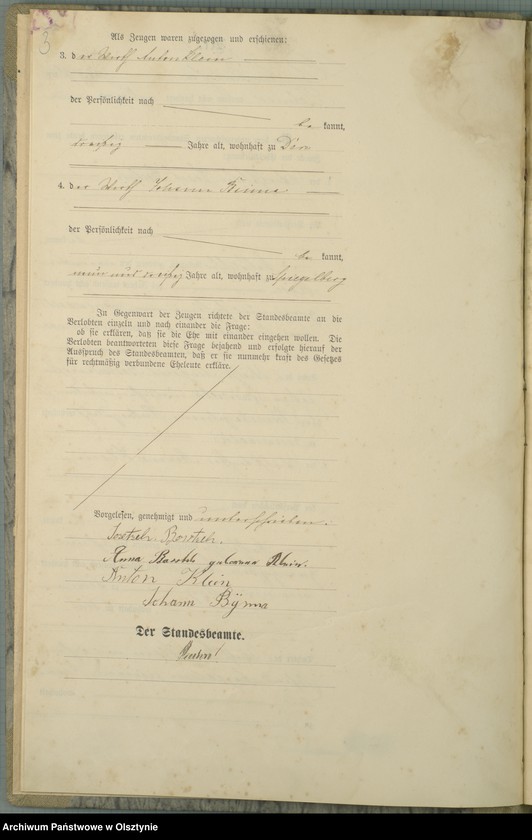 3
Als Zeugen waren zugezogen und erschienen:
3. der Wirth Anton Klein
der Persönlichkeit nach
be kannt,
dreißig Jahre alt, wohnhaft zu
4. der Wirth Johann
der Persönlichkeit nach
be kannt,
neun und dreißig Jahre alt, wohnhaft zu Spiegelberg
In Gegenwart der Zeugen richtete der Standesbeamte an die
Verlobten einzeln und nach einander die Frage:
ob sie erklären, daß sie die Ehe mit einander eingehen wollen. Die
Verlobten beantworteten diese Frage bejahend und erfolgte hierauf der
Ausspruch des Standesbeamten, daß er sie nunmehr kraft des Gesetzes
für rechtmäßig verbundene Eheleute erkläre.
Vorgelesen, genehmigt und unterschrieben.
Anna geborene Klein.
Anton Klein
Johann
Der Standesbeamte.
Archiwum Państwowe w Olsztynie